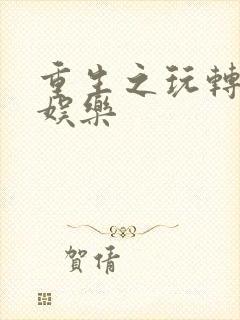 重生之玩轉
娛樂
賀倩